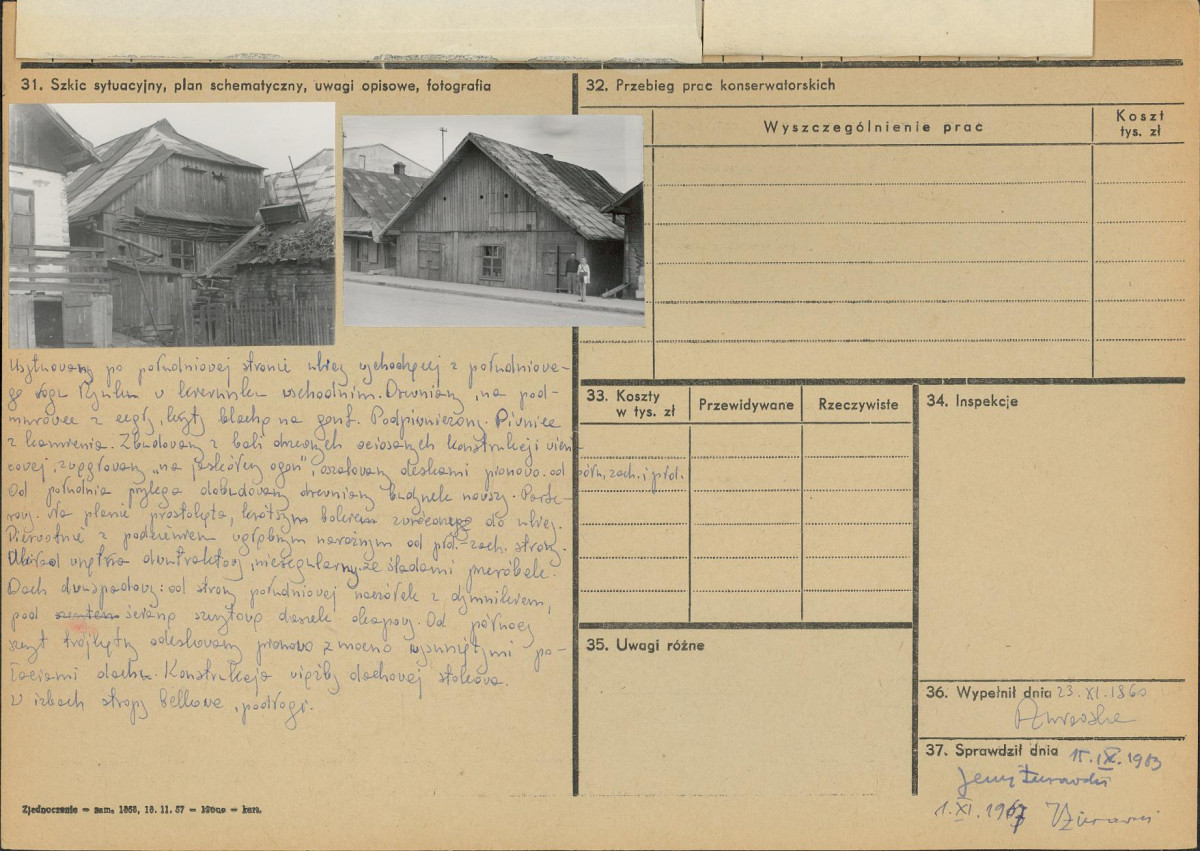 31. Szkic sytuacyjny, plan schematyczny, uwagi opisowe, fotografia
Usytuowany po południowej stronie ulicy wychodzącej z południowe-
go rogu Rynku w kierunku wschodnim. Drewniany, na pod-
murówce z cegły, kryty blachą na gont. Podpiwniczony. Piwnice
z kamienia. Zbudowany z bali drzewnych ociosanych konstrukcji wień-
cowej, zwęgłowany „na jaskółczy ogon", oszalowany deskami pionowo. od półn., zach. i płd.
Od południa przylega dobudowany drewniany budynek nowszy. Parte-
rowy. Na planie prostokąta, krótszym bokiem zwróconego do ulicy.
Pierwotnie z podcieniem wgłębnym narożnym od płd.-zach. strony.
Układ wnętrza dwutraktowy, nieregularny ze śladami przeróbek.
Dach dwuspadowy: od strony południowej naczółek z dymnikiem,
pod szczytem ścianą szczytową daszek okapowy. Od północy
szczyt trójkątny odeskowany pionowo z mocno wysuniętymi po-
łaciami dachu. Konstrukcja więźby dachowej stolcowa.
W izbach stropy belkowe, podłogi.
Zjednoczenie — zam. 1868, 18. 11. 57 — — kart.
32. Przebieg prac konserwatorskich
Wyszczególnienie prac
Koszt
tys. zł
33. Koszty
w tys. zł
Przewidywane
Rzeczywiste
34. Inspekcje
35. Uwagi różne
36. Wypełnił dnia 23. XI. 1860
37. Sprawdził dnia 15. IX. 1963
Jerzy Żurawski
1. XI. 1967